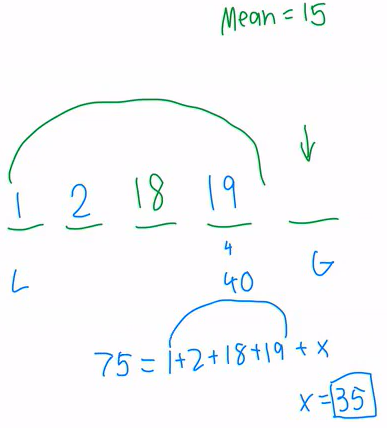 Mean = 15
1 2 18 19
4
L 40 G
75 = 1+2+18+19 + x
x = 35